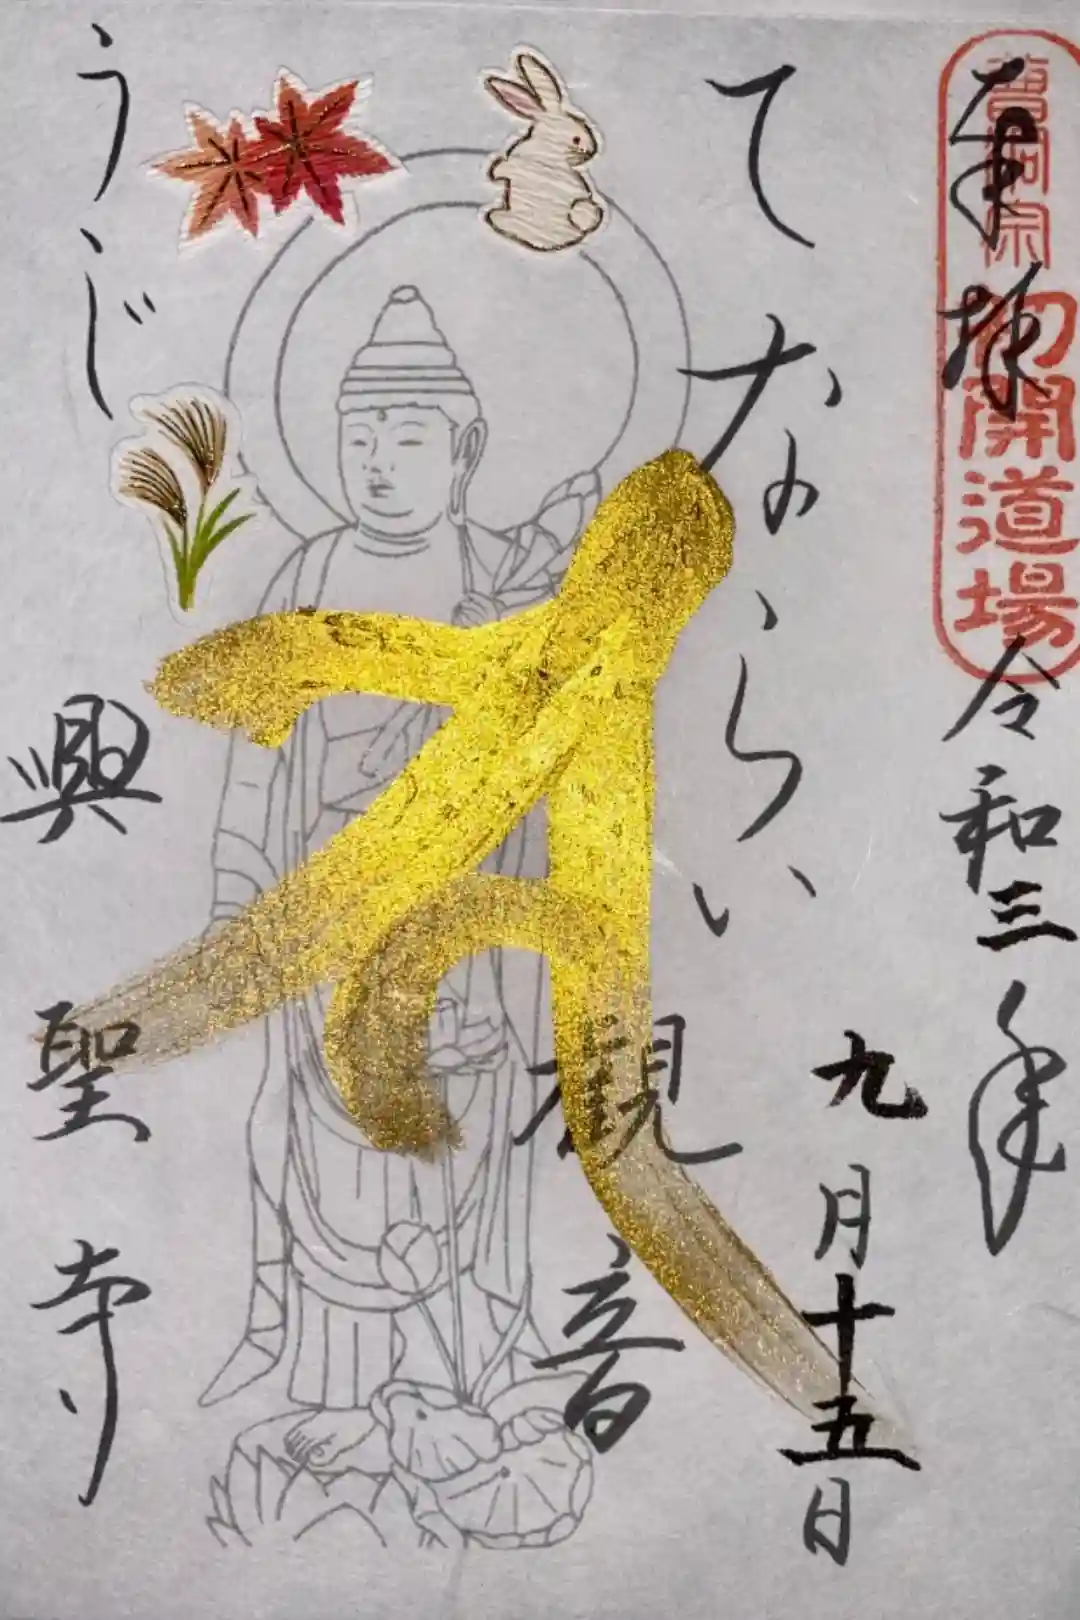 奉拝
曹洞宗
初開道場
令和三年
九月十五日
てならい
観音
うじ
興聖寺